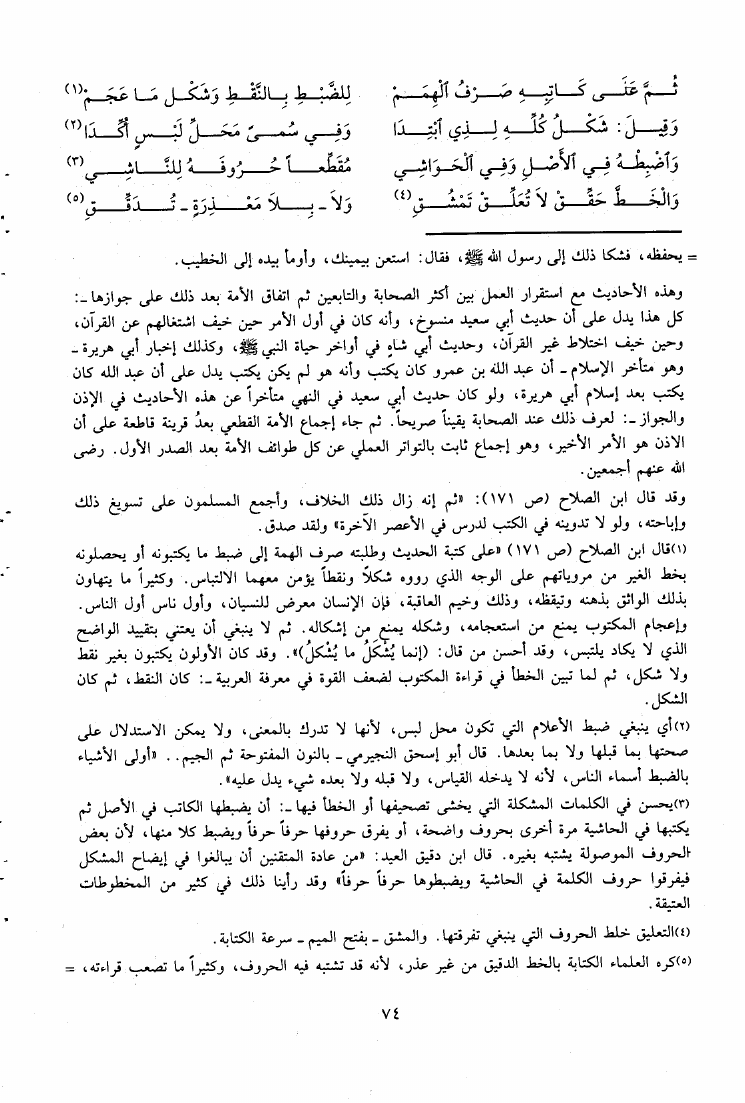 ثُمَّ عَلَى كَاتِبِهِ صَرْفُ ٱلْهِمَمْ لِلضَّبْطِ بِالنَّقْطِ وَشَكْلِ مَا عَجَمْ(١)
وَقِيلَ: شَكْلُ كُلِّهِ لِذِي ٱبْتِدَا وَفِي سُمىً مَحَلِّ لَبْسٍ أُكِّدَا(٢)
وَٱضْبِطْهُ فِي ٱلْأَصْلِ وَفِي ٱلْحَوَاشِي مُقَطِّعاً حُرُوفَهُ لِلنَّاشِي(٣)
وَٱلْخَطَّ حَقِّقْ لَا تُعَلِّقْ تَمْشُقِ(٤) وَلَا ـ بِلَا مَعْذِرَةٍ ـ تُدَقِّقِ(٥)
= يحفظه، فشكا ذلك إلى رسول الله ﷺ، فقال: استعن بيمينك، وأومأ بيده إلى الخطيب.
وهذه الأحاديث مع استقرار العمل بين أكثر الصحابة والتابعين ثم اتفاق الأمة بعد ذلك على جوازها ـ:
كل هذا يدل على أن حديث أبي سعيد منسوخ، وأنه كان في أول الأمر حين خيف اشتغالهم عن القرآن،
وحين خيف اختلاط غير القرآن، وحديث أبي شاهٍ في أواخر حياة النبي ﷺ، وكذلك إخبار أبي هريرة ـ
وهو متأخر الإسلام ـ أن عبد الله بن عمرو كان يكتب وأنه هو لم يكن يكتب يدل على أن عبد الله كان
يكتب بعد إسلام أبي هريرة، ولو كان حديث أبي سعيد في النهي متأخراً عن هذه الأحاديث في الإذن
والجواز ـ: لعرف ذلك عند الصحابة يقيناً صريحاً. ثم جاء إجماع الأمة القطعي بعدُ قرينة قاطعة على أن
الاذن هو الأمر الأخير، وهو إجماع ثابت بالتواتر العملي عن كل طوائف الأمة بعد الصدر الأول. رضى
الله عنهم أجمعين.
وقد قال ابن الصلاح (ص ١٧١): «ثم إنه زال ذلك الخلاف، وأجمع المسلمون على تسويغ ذلك
وإباحته، ولو لا تدوينه في الكتب لدرس في الأعصر الآخرة» ولقد صدق.
(١)قال ابن الصلاح (ص ١٧١) «على كتبة الحديث وطلبته صرف الهمة إلى ضبط ما يكتبونه أو يحصلونه
بخط الغير من مروياتهم على الوجه الذي رووه شكلاً ونقطاً يؤمن معهما الالتباس. وكثيراً ما يتهاون
بذلك الواثق بذهنه وتيقظه، وذلك وخيم العاقبة، فإن الإنسان معرض للنسيان، وأول ناس أول الناس.
وإعجام المكتوب يمنع من استعجامه، وشكله يمنع من إشكاله. ثم لا ينبغي أن يعتني بتقييد الواضح
الذي لا يكاد يلتبس، وقد أحسن من قال: (إنما يُشْكَلُ ما يُشْكلُ)». وقد كان الأولون يكتبون بغير نقط
ولا شكل، ثم لما تبين الخطأ في قراءة المكتوب لضعف القوة في معرفة العربية ـ: كان النقط، ثم كان
الشكل.
(٢)أي ينبغي ضبط الأعلام التي تكون محل لبس، لأنها لا تدرك بالمعنى، ولا يمكن الاستدلال على
صحتها بما قبلها ولا بما بعدها. قال أبو إسحق النجيرمي ـ بالنون المفتوحة ثم الجيم.. «أولى الأشياء
بالضبط أسماء الناس، لأنه لا يدخله القياس، ولا قبله ولا بعده شيء يدل عليه».
(٣)يحسن في الكلمات المشكلة التي يخشى تصحيفها أو الخطأ فيها ـ: أن يضبطها الكاتب في الأصل ثم
يكتبها في الحاشية مرة أخرى بحروف واضحة، أو يفرق حروفها حرفاً حرفاً ويضبط كلا منها، لأن بعض
الحروف الموصولة يشتبه بغيره. قال ابن دقيق العيد: «من عادة المتقنين أن يبالغوا في إيضاح المشكل
فيفرقوا حروف الكلمة في الحاشية ويضبطوها حرفاً حرفاً» وقد رأينا ذلك في كثير من المخطوطات
العتيقة.
(٤)التعليق خلط الحروف التي ينبغي تفرقتها. والمشق ـ بفتح الميم ـ سرعة الكتابة.
(٥)كره العلماء الكتابة بالخط الدقيق من غير عذر، لأنه قد تشتبه فيه الحروف، وكثيراً ما تصعب قراءته، =
٧٤